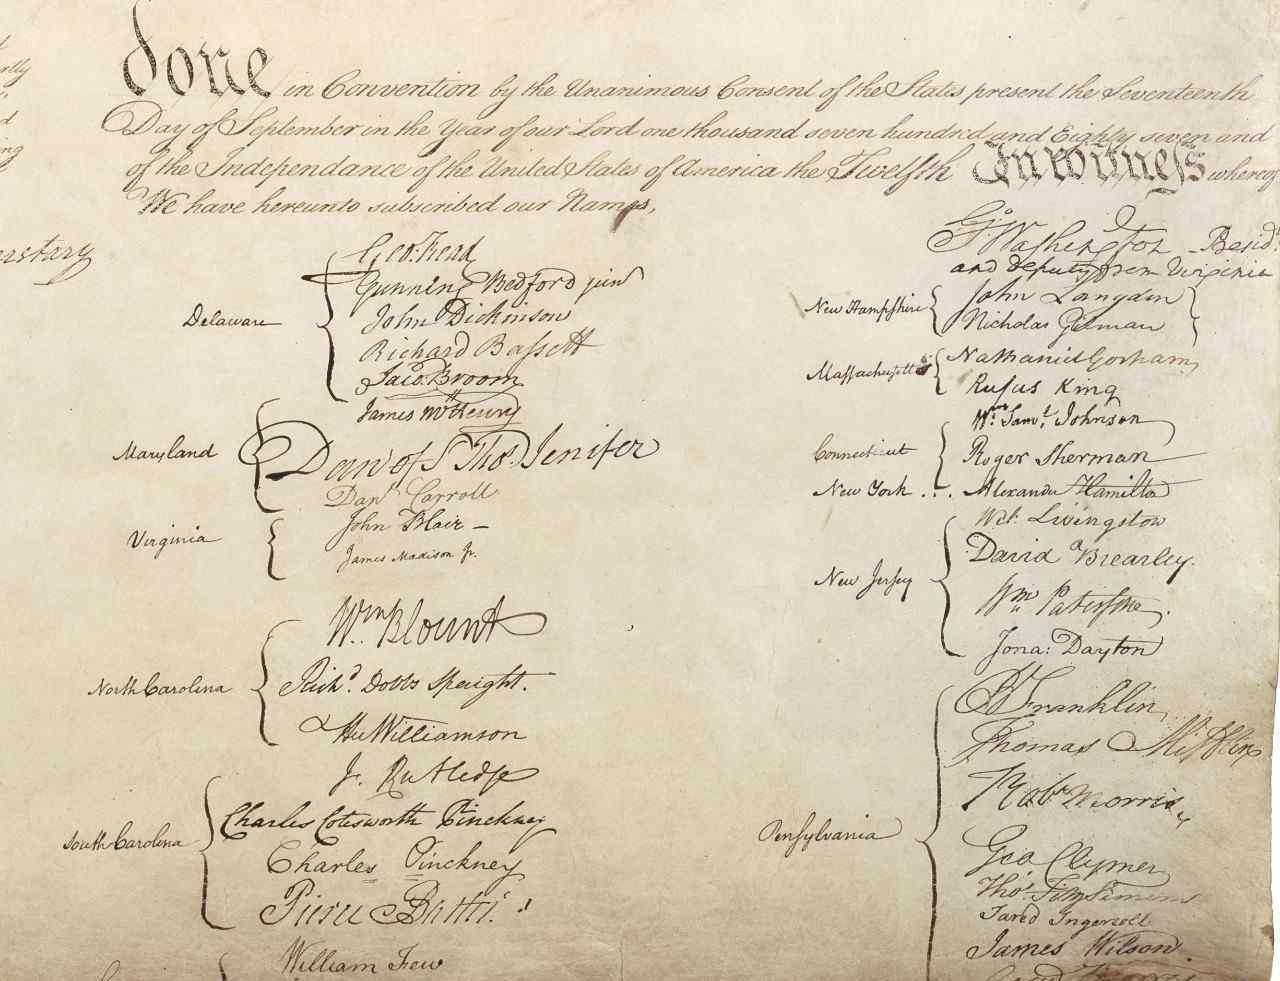 done in Convention by the Unanimous Consent of the States present the Seventeenth
Day of September in the Year of our Lord one thousand seven hundred and Eighty seven and
of the Independance of the United States of America the Twelfth In Witness whereof
We have hereunto subscribed our Names,
Delaware
Geo: Read
Gunning Bedford jun
John Dickinson
Richard Bassett
Jaco: Broom
Maryland
James McHenry
Dan of St Thos. Jenifer
Danl Carroll
Virginia
John Blair –
James Madison Jr.
North Carolina
Wm Blount
Richd. Dobbs Spaight.
Hu Williamson
South Carolina
J. Rutledge
Charles Cotesworth Pinckney
Charles Pinckney
Pierce Butler.
William Few
Go: Washington – Presidt.
and deputy from Virginia
New Hampshire
John Langdon
Nicholas Gilman
Massachusetts
Nathaniel Gorham
Rufus King
Connecticut
Wm. Saml. Johnson
Roger Sherman
New York . . . Alexander Hamilton
New Jersey
Wil: Livingston
David Brearley.
Wm Paterson.
Jona: Dayton
Pensylvania
B Franklin
Thomas Mifflin
Robt Morris
Geo. Clymer
Thos. FitzSimons
Jared Ingersoll
James Wilson.